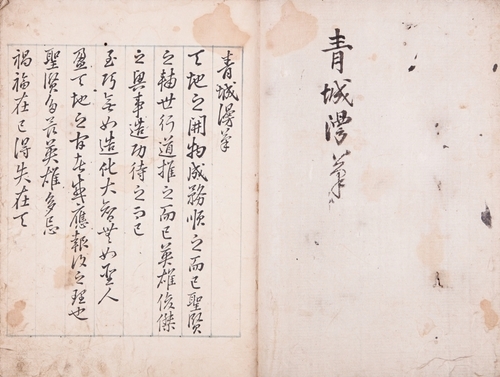 青城漫筆
青城漫筆
天地之開物成務順之而已聖賢
之輔世行道推之而已英雄俊傑
之興事造功待之而已
至巧無如造化大智無如聖人
盈天地之應報復之理也
聖賢多英雄多忌
禍福在己得失在天